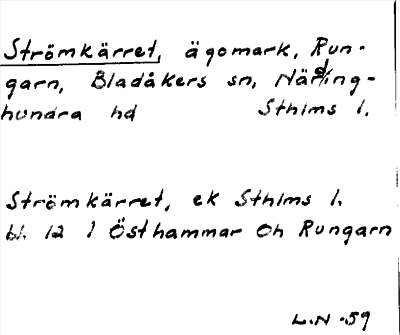 Strömkärret, ägomark, Run-
garn, Bladåkers sn, Närding-
hundra hd Sthlms l.
Strömkärret, ek Sthlms l.
bl. 12 1 Östhammar Oh Rungarn
L.N -59